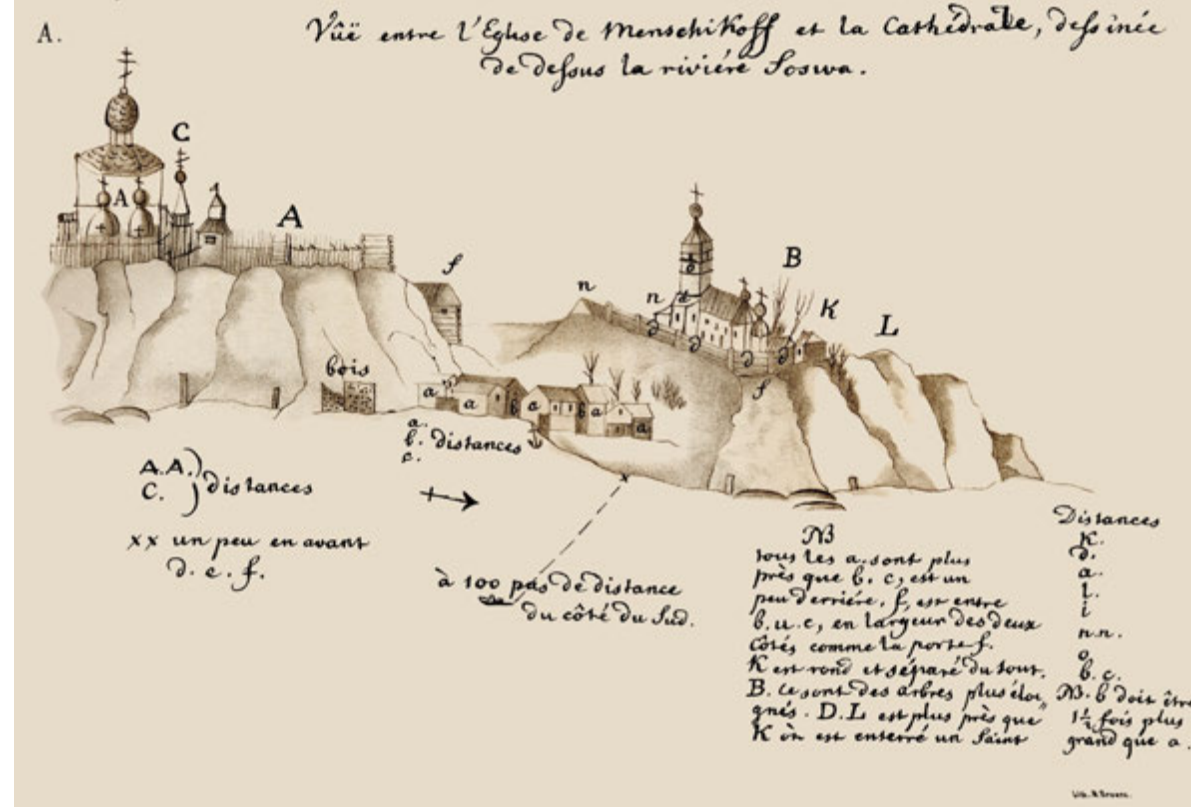 A.
Vûë entre l'Eglise de Menschikoff et la Cathédrale, dessinée
de dessus la riviére Soswa.
C
A
A
f
B
n
n
d
d
d
d
d
d
K
L
f
bois
a
a
b
a
b
a
a
a.
b. distances
c.
A.A.
C. distances
xx un peu en avant
d. e. f.
x
à 100 pas de distance
du côté du Sud.
NB
tous les a. sont plus
près que b. c, est un
peu derriére. f, est entre
b. u. c, en largeur des deux
côtés comme la porte f.
K est rond et séparé du tout.
B. ce sont des arbres plus éloi
gnés. D. L est plus près que
K òn est enterré un Saint
Distances
K.
d.
a.
l.
i
n.n.
o
b. c.
NB. b doit être
1½ fois plus
grand que a.